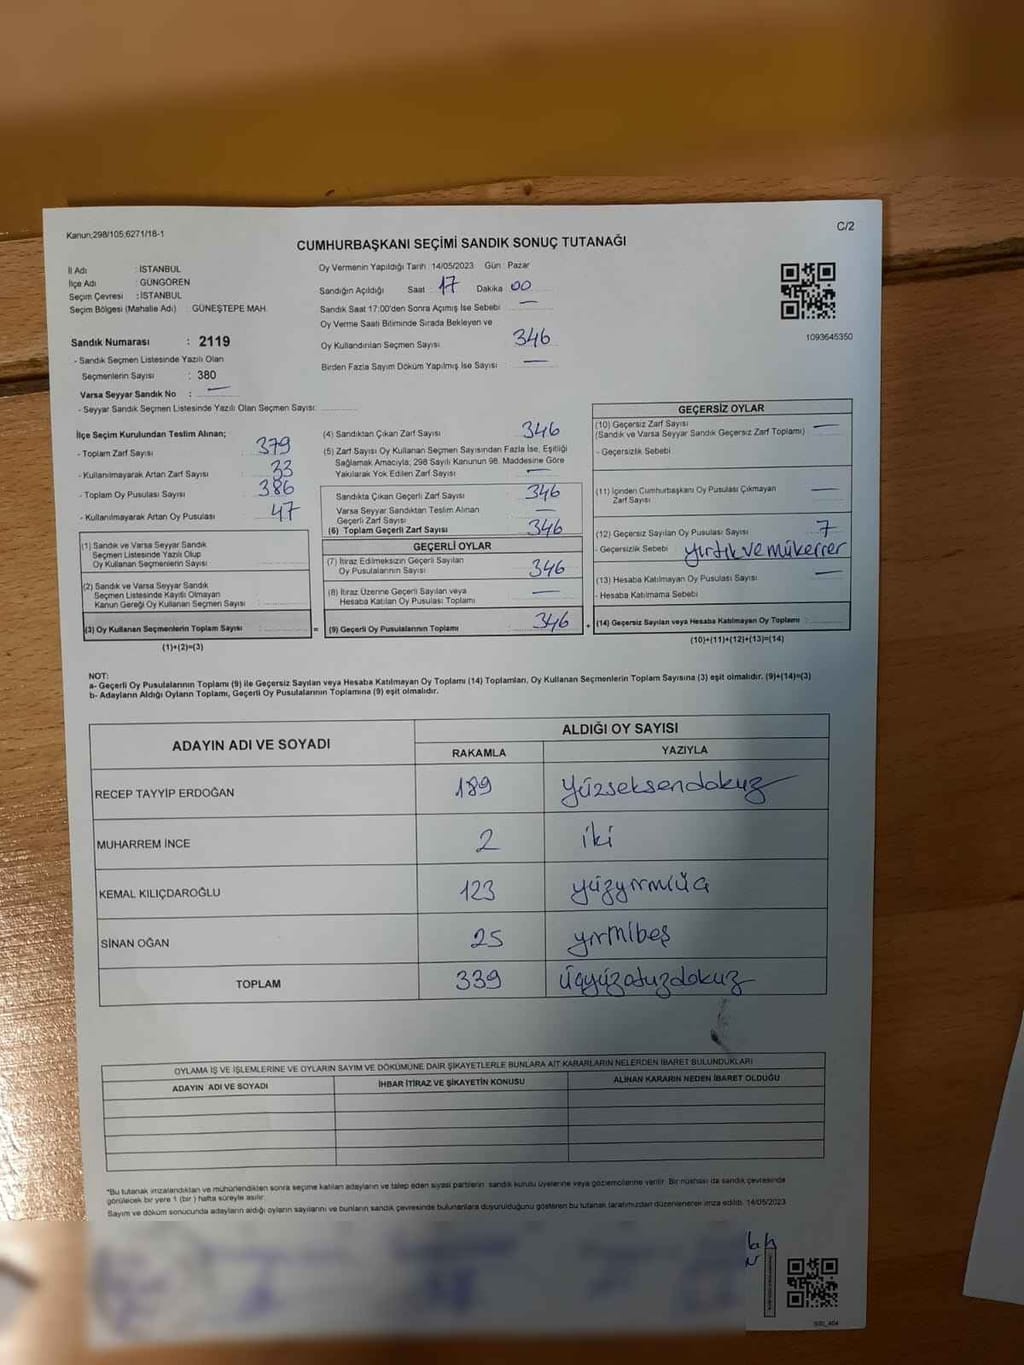 Kanun;298/105;6271/18-1
C/2
CUMHURBAŞKANI SEÇİMİ SANDIK SONUÇ TUTANAĞI
İl Adı : İSTANBUL
İlçe Adı : GÜNGÖREN
Seçim Çevresi : İSTANBUL
Seçim Bölgesi (Mahalle Adı) GÜNEŞTEPE MAH.
Oy Vermenin Yapıldığı Tarih :14/05/2023 Gün : Pazar
Sandığın Açıldığı Saat : 17 Dakika 00
Sandık Saat 17:00'den Sonra Açımış İse Sebebi
Oy Verme Saati Bitiminde Sırada Bekleyen ve
Oy Kullandırılan Seçmen Sayısı 346
Birden Fazla Sayım Döküm Yapılmış İse Sayısı :
1093645350
Sandık Numarası : 2119
- Sandık Seçmen Listesinde Yazılı Olan
Seçmenlerin Sayısı : 380
Varsa Seyyar Sandık No :
- Seyyar Sandık Seçmen Listesinde Yazılı Olan Seçmen Sayısı:
İlçe Seçim Kurulundan Teslim Alınan;
- Toplam Zarf Sayısı : 379
- Kullanılmayarak Artan Zarf Sayısı : 33
- Toplam Oy Pusulası Sayısı : 386
- Kullanılmayarak Artan Oy Pusulası : 47
(1) Sandık ve Varsa Seyyar Sandık
Seçmen Listesinde Yazılı Olup
Oy Kullanan Seçmenlerin Sayısı :
(2) Sandık ve Varsa Seyyar Sandık
Seçmen Listesinde Kayıtlı Olmayan
Kanun Gereği Oy Kullanan Seçmen Sayısı :
(3) Oy Kullanan Seçmenlerin Toplam Sayısı :
(1)+(2)=(3)
(4) Sandıktan Çıkan Zarf Sayısı : 346
(5) Zarf Sayısı Oy Kullanan Seçmen Sayısından Fazla İse, Eşitliği
Sağlamak Amacıyla; 298 Sayılı Kanunun 98. Maddesine Göre
Yakılarak Yok Edilen Zarf Sayısı :
Sandıkta Çıkan Geçerli Zarf Sayısı : 346
Varsa Seyyar Sandıktan Teslim Alınan
Geçerli Zarf Sayısı :
(6) Toplam Geçerli Zarf Sayısı : 346
GEÇERLİ OYLAR
(7) İtiraz Edilmeksizin Geçerli Sayılan
Oy Pusulalarının Sayısı : 346
(8) İtiraz Üzerine Geçerli Sayılan veya
Hesaba Katılan Oy Pusulası Toplamı :
= (9) Geçerli Oy Pusulalarının Toplamı : 346
GEÇERSİZ OYLAR
(10) Geçersiz Zarf Sayısı :
(Sandık ve Varsa Seyyar Sandık Geçersiz Zarf Toplamı)
- Geçersizlik Sebebi
(11) İçinden Cumhurbaşkanı Oy Pusulası Çıkmayan
Zarf Sayısı :
(12) Geçersiz Sayılan Oy Pusulası Sayısı : 7
- Geçersizlik Sebebi yırtık ve mükerrer
(13) Hesaba Katılmayan Oy Pusulası Sayısı :
- Hesaba Katılmama Sebebi
+ (14) Geçersiz Sayılan veya Hesaba Katılmayan Oy Toplamı :
(10)+(11)+(12)+(13)=(14)
NOT:
a- Geçerli Oy Pusulalarının Toplamı (9) ile Geçersiz Sayılan veya Hesaba Katılmayan Oy Toplamı (14) Toplamları, Oy Kullanan Seçmenlerin Toplam Sayısına (3) eşit olmalıdır. (9)+(14)=(3)
b- Adayların Aldığı Oyların Toplamı, Geçerli Oy Pusulalarının Toplamına (9) eşit olmalıdır.
ADAYIN ADI VE SOYADI
ALDIĞI OY SAYISI
RAKAMLA YAZIYLA
RECEP TAYYİP ERDOĞAN 189 yüzseksendokuz
MUHARREM İNCE 2 iki
KEMAL KILIÇDAROĞLU 123 yüzyirmiüç
SİNAN OĞAN 25 yirmibeş
TOPLAM 339 üçyüzotuzdokuz
OYLAMA İŞ VE İŞLEMLERİNE VE OYLARIN SAYIM VE DÖKÜMÜNE DAİR ŞİKAYETLERLE BUNLARA AİT KARARLARIN NELERDEN İBARET BULUNDUKLARI
ADAYIN ADI VE SOYADI İHBAR İTİRAZ VE ŞİKAYETİN KONUSU ALINAN KARARIN NEDEN İBARET OLDUĞU
*Bu tutanak imzalandıktan ve mühürlendikten sonra seçime katılan adayların ve talep eden siyasi partilerin sandık kurulu üyelerine veya gözlemcilerine verilir. Bir nüshası da sandık çevresinde
görülecek bir yere 1 (bir) hafta süreyle asılır.
Sayım ve döküm sonucunda adayların aldığı oyların sayılarını ve bunların sandık çevresinde bulunanlara duyurulduğunu gösteren bu tutanak tarafımızdan düzenlenerek imza edildi. 14/05/2023